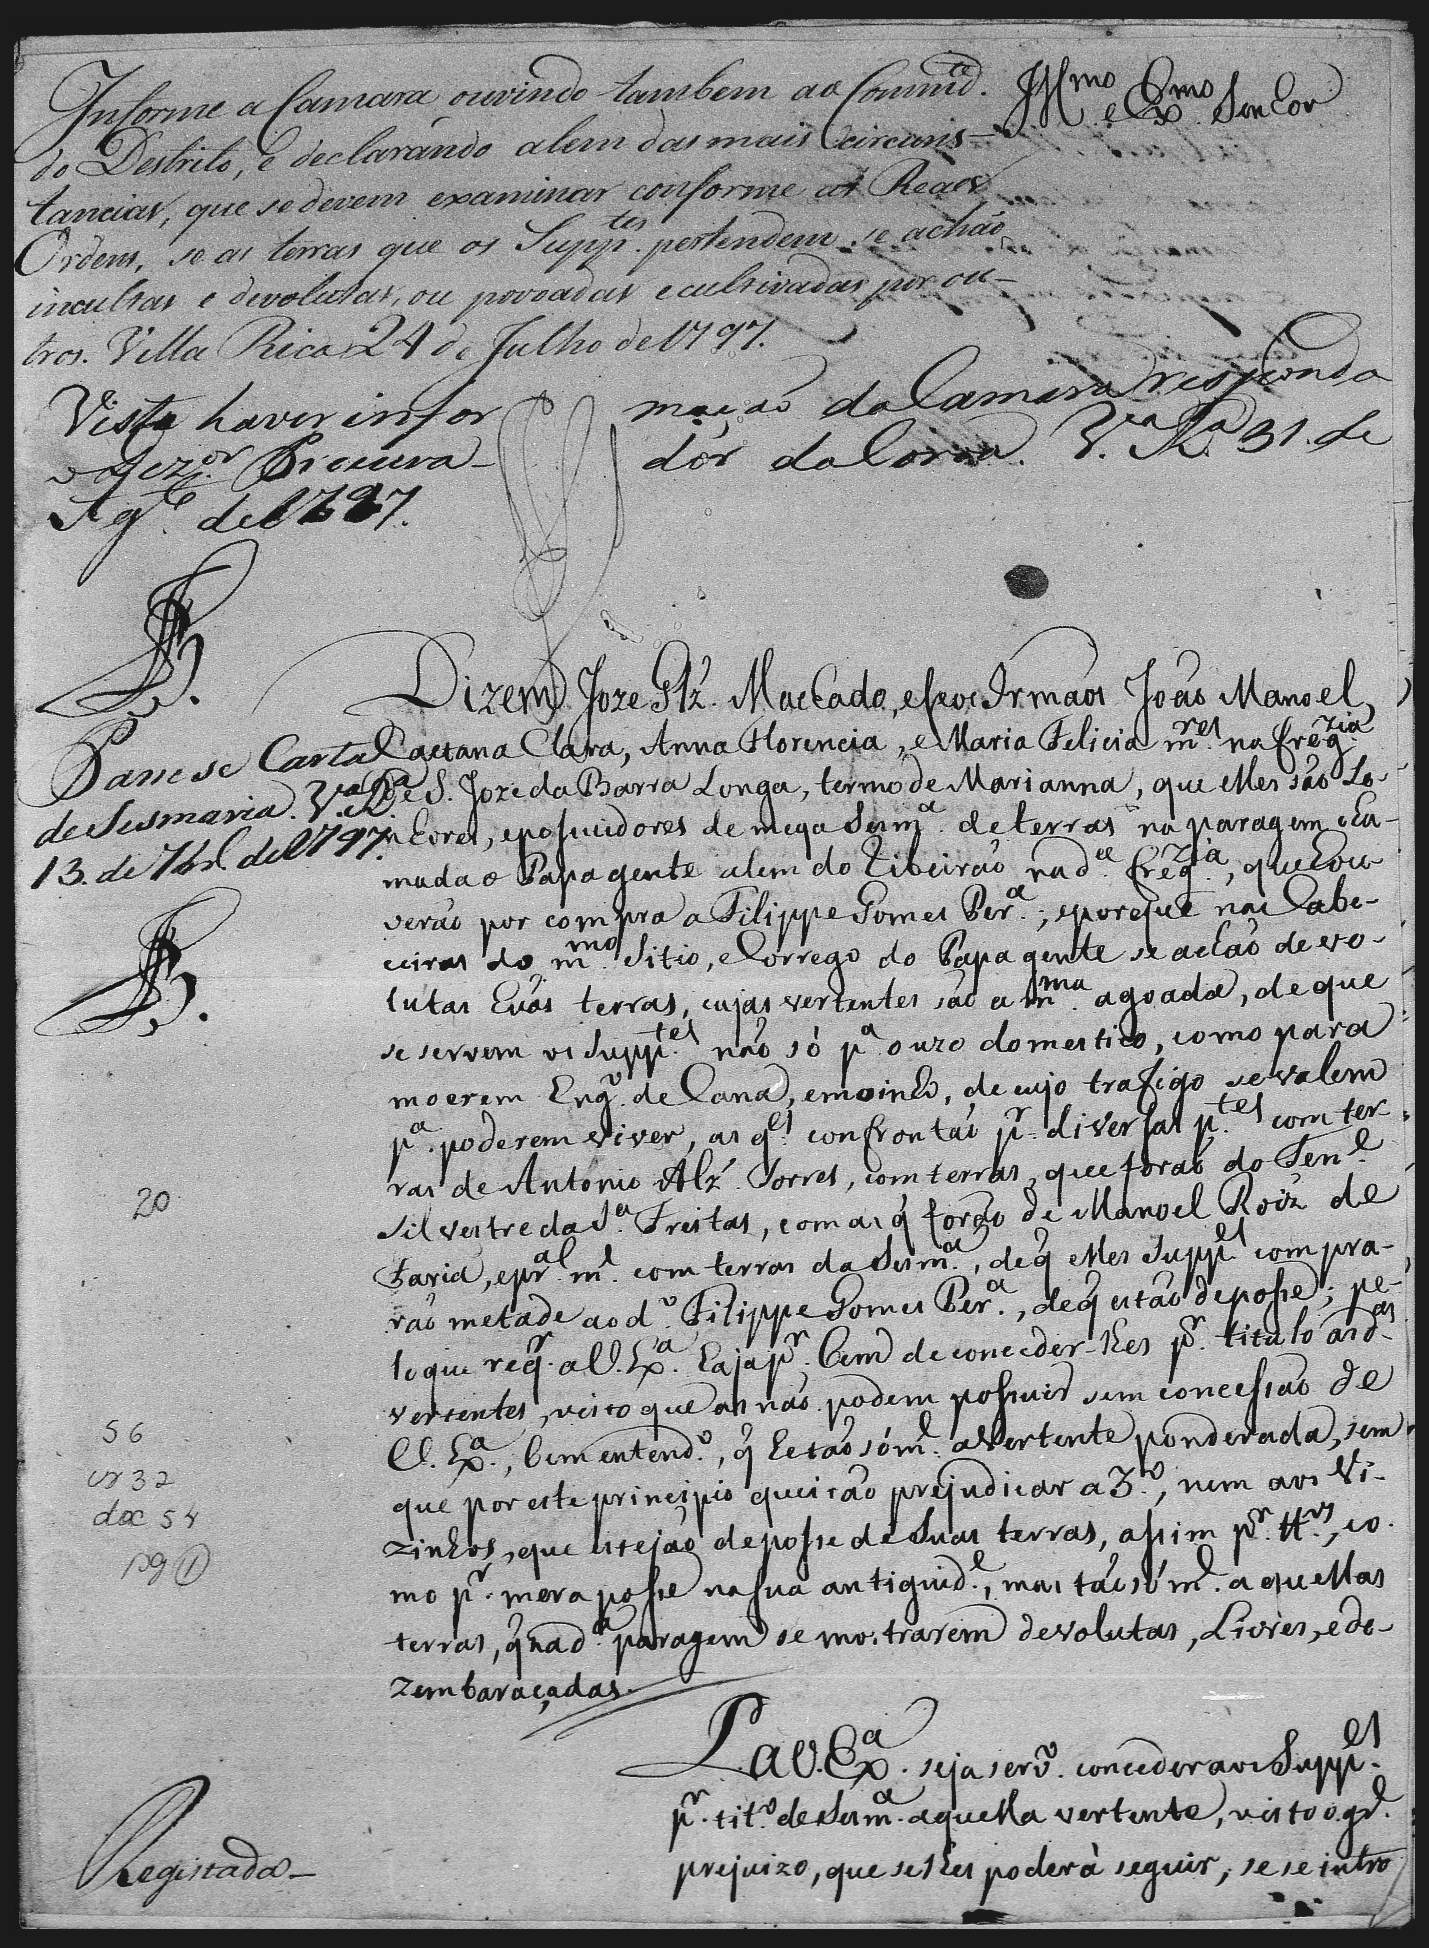 Informe a Camara ouvindo tambem ao Command.te
do Destrito, e declarando alem das mais circuns-
tancias, que se devem examinar conforme as Reaes
Ordens, se as terras que os Supp.tes pertendem se achão
incultas e devolutas, ou povoadas e cultivadas por ou-
tros. Villa Rica 24 de Julho de 1797.
Ill.mo e Ex.mo Senhor
Vista haver infor mação da Camera responda
o Dez.or Procura- dór da Coroa. V.a R.a 31. de
Ag.to de 1797.
Passe se Carta
de Sesmaria. V.a R.a
13. de 7br.o de 1797.
Dizem Joze Glz'. Machado, e seos Irmãos João Manoel,
Caetana Clara, Anna Florencia, e Maria Felicia m.res na freg.zia
de S. Joze da Barra Longa, termo de Marianna, que elles são Se-
nhores, e possuidores de meya Sesm.a de terras na paragem cha-
mada o Papagente alem do Ribeirão na d.a freg.zia, que hou-
verão por compra a Filippe Gomes Per.a; e porque nas Cabe-
ceiras do m.mo Sitio, e Corrego do Papagente se achão devo-
lutas huãs terras, cujas vertentes são a m.ma agoada, de que
se servem os Supp.tes não só p.a o uzo domestico, como para
moerem Eng.o de Cana, e moinho, de cujo trafigo se valem
p.a poderem viver, as q.es confrontão p.r diversas p.tes com ter-
ras de Antonio Alz'. Torres, com terras, que forão do Ten.e
Silvestre da S.a Freitas, e com as q̃ forão de Manoel Roiz de
Faria, e pr.al m.e com terras da Sesm.a, de q̃ elles Supp.es compra-
rão metade ao d.o Filippe Gomes Per.a, de q̃ estão de posse; pe-
lo que req.r a V. Ex.a haja p.r bem de conceder-lhes p.r titulo as d.as
vertentes, visto que as não podem possuir sem concessão de
V. Ex.a, bem entend.o, q̃ he tão sóm.e a vertente ponderada, sem
que por este principio queirão prejudicar a 3.o, nem aos Vi-
zinhos, que estejão de posse de suas terras, assim p.r tt.os, co-
mo p.r mera posse na sua antiguid.e, mas tão sóm.e aquellas
terras, q̃ na d.a paragem se mostrarem devolutas, Livres, e de-
zembaraçadas.
20
56
cx 32
doc 54
pg 1
P. a V. Ex.a seja serv.o conceder aos Supp.es
p.r tit.o de Sesm.a aquella vertente, visto o g.de
prejuizo, que se lhes poderá seguir, se se intro
Registada-